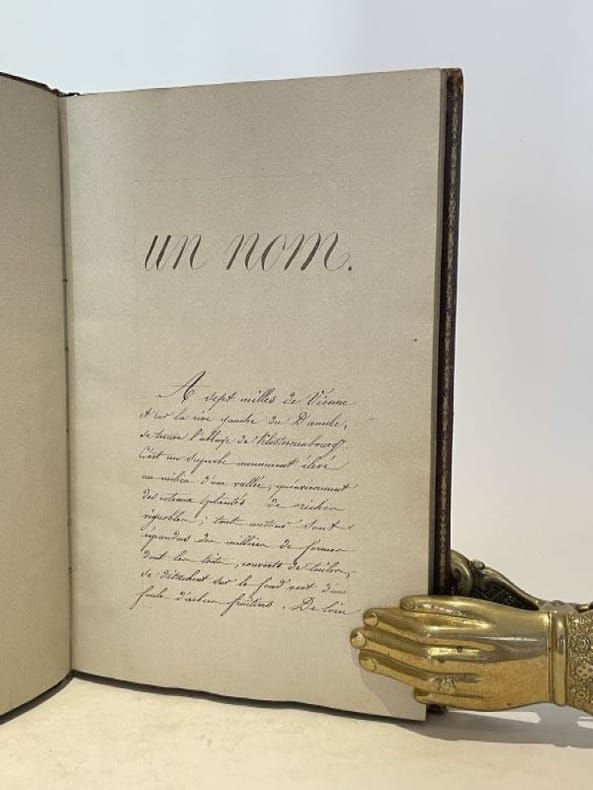 un nom.
A sept milles de Vienne
et sur la rive gauche du Danube,
se trouve l'abbaye de Klosterneubourg.
C'est un superbe monument élevé
au milieu d'une vallée, qu'environnent
des coteaux plantés de riches
vignobles ; tout autour sont
répandus des milliers de fermes
dont les toits, couverts de tuiles,
se détachent sur le fond vert d'une
foule d'arbres fruitiers. De loin